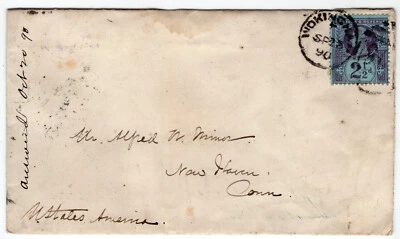 WOKING
SP
90
2½
answered Oct 20 90
Mr. Alfred W. Minor.
New Haven.
Conn.
UStates America.